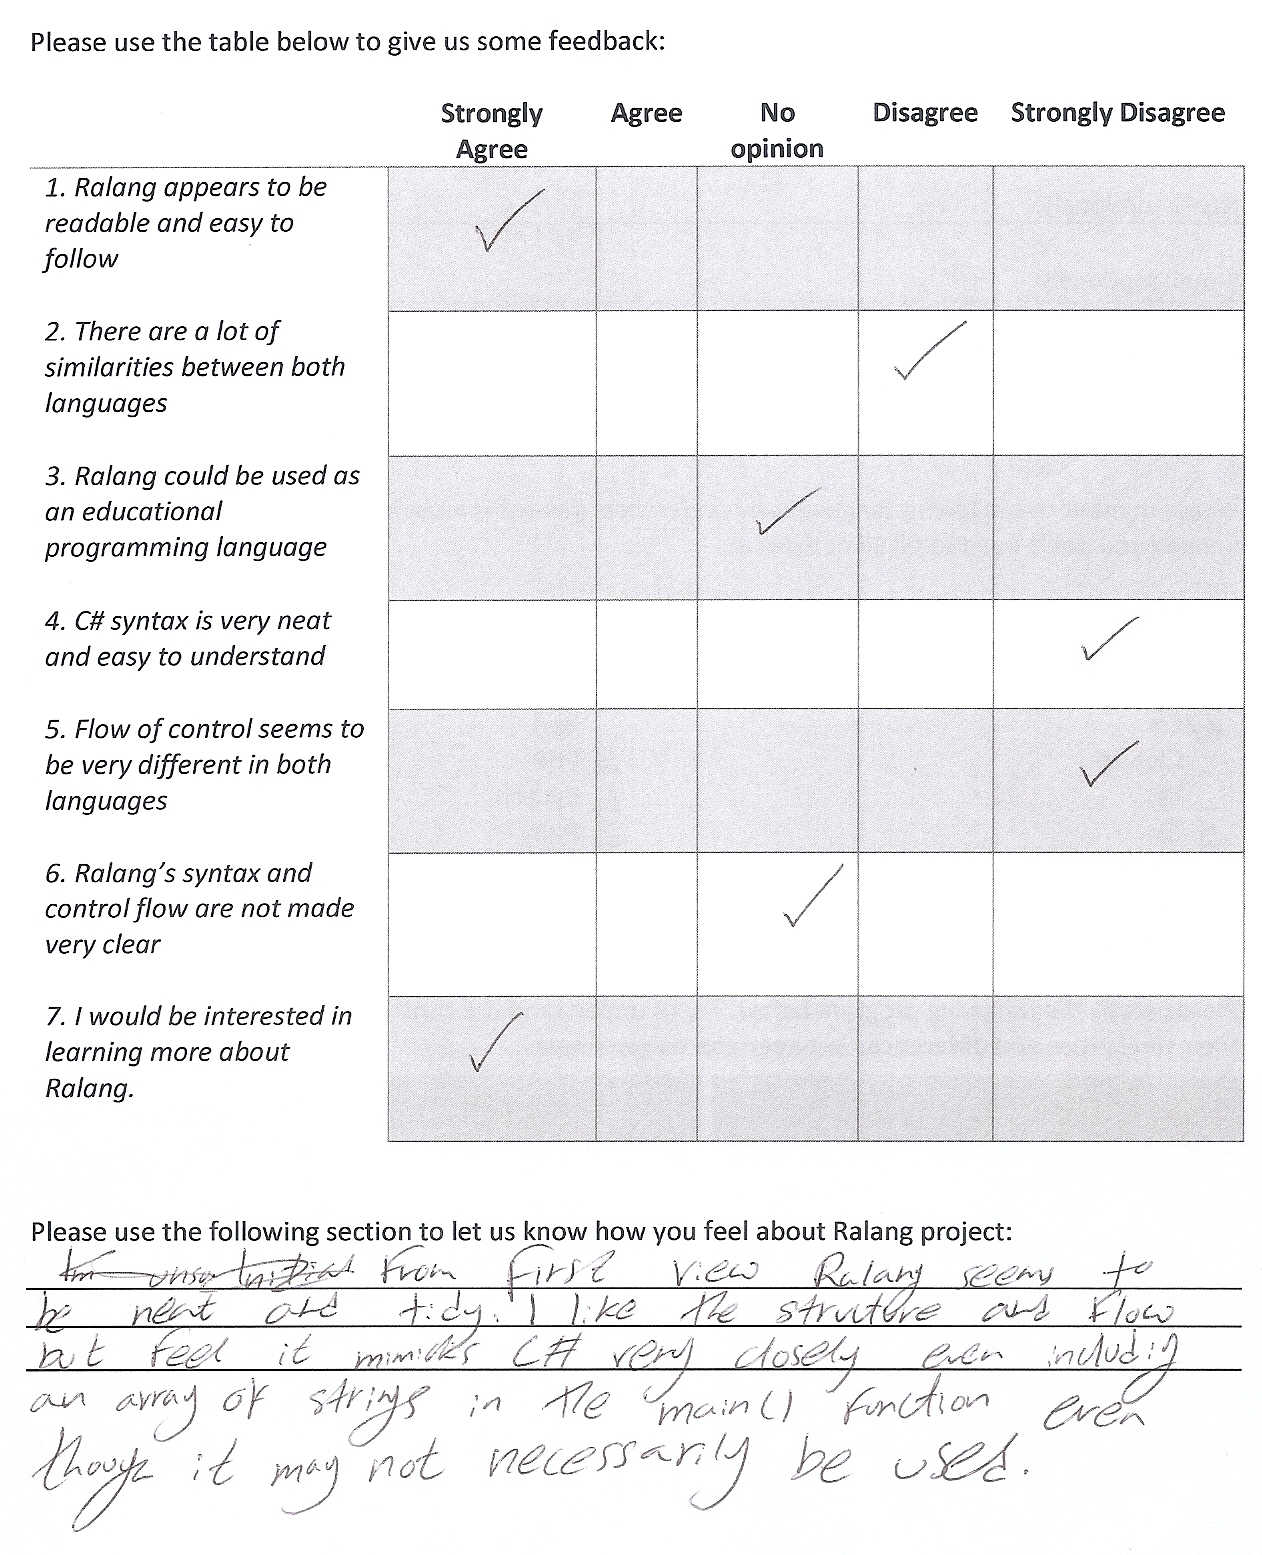 Please use the table below to give us some feedback:
Strongly Agree Agree No opinion Disagree Strongly Disagree
1. Ralang appears to be
readable and easy to
follow
2. There are a lot of
similarities between both
languages
3. Ralang could be used as
an educational
programming language
4. C# syntax is very neat
and easy to understand
5. Flow of control seems to
be very different in both
languages
6. Ralang's syntax and
control flow are not made
very clear
7. I would be interested in
learning more about
Ralang.
Please use the following section to let us know how you feel about Ralang project:
From first view Ralang seems to
be neat and tidy. I like the struture and flow
but feel it mimicks C# very closely even includig
an array of strings in the main() function even
though it may not necessarily be used.